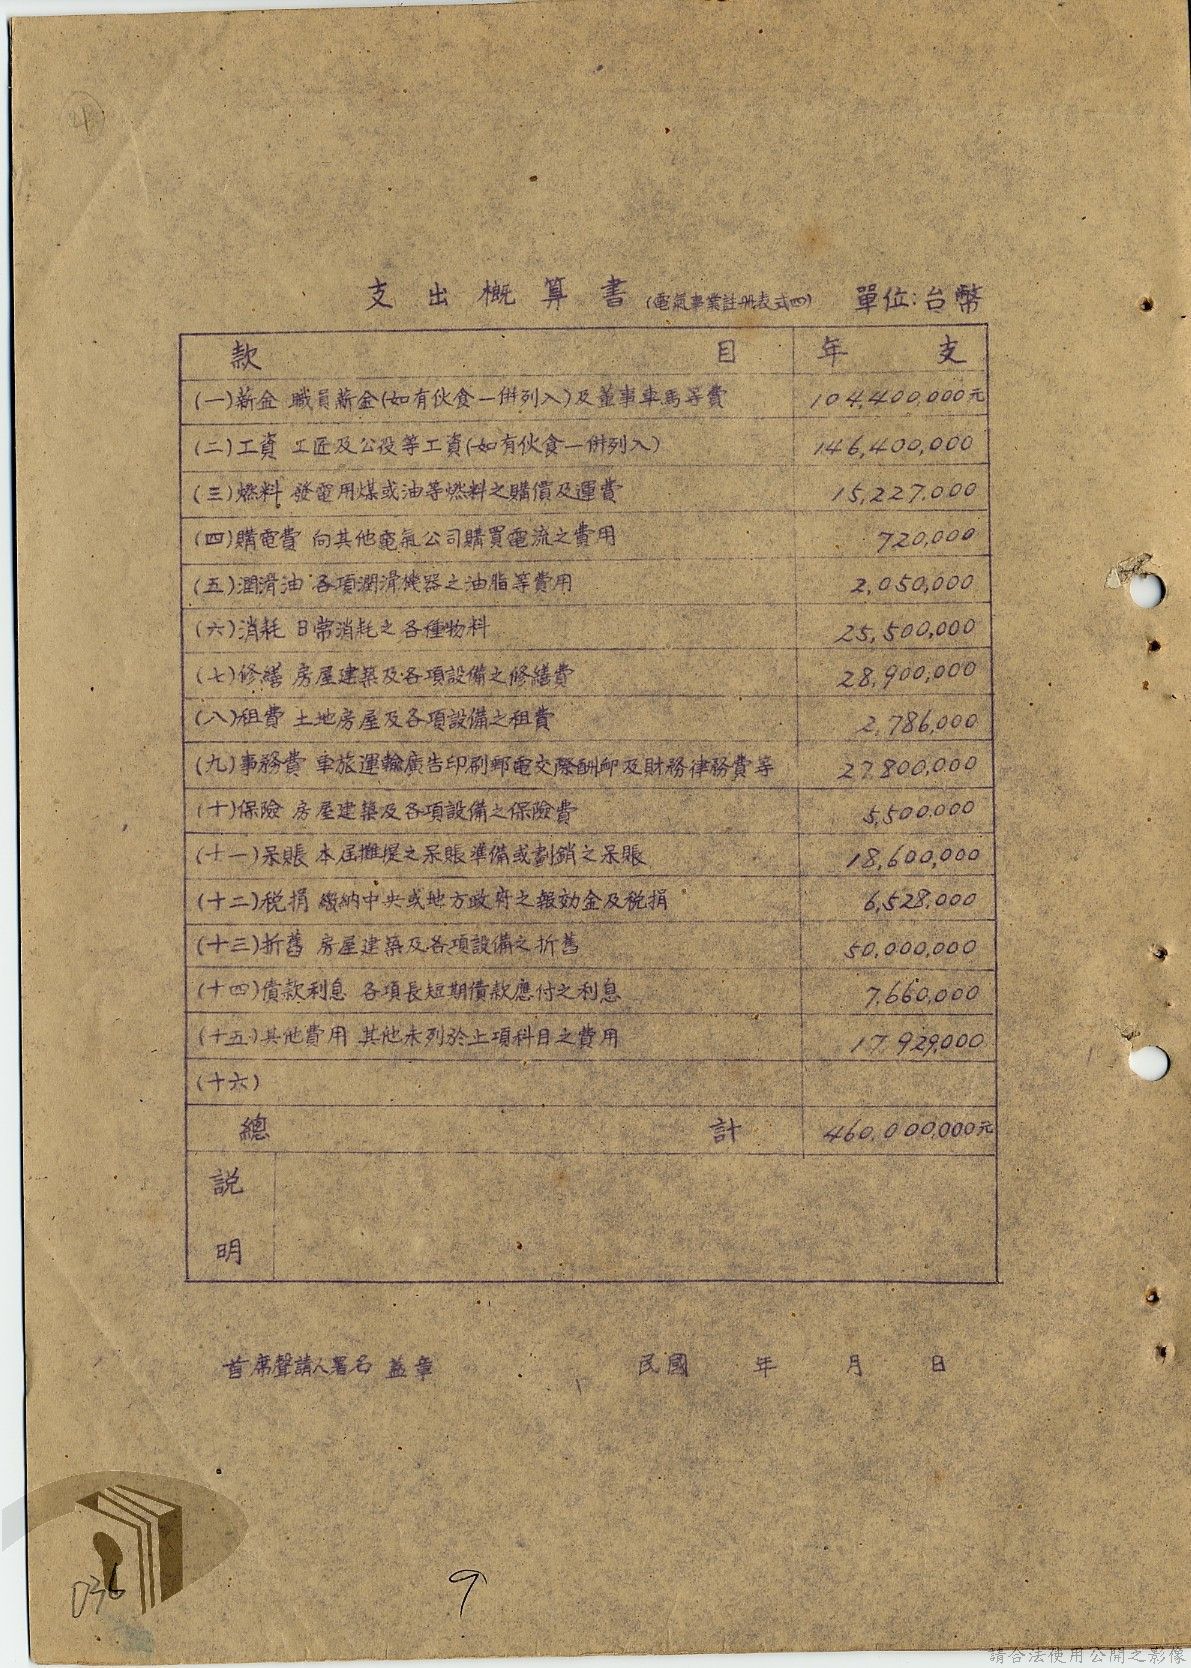 支出概算書 (電氣事業註册表式四) 單位:台幣
款 目 年 支
(一)薪金 職員薪金(如有伙食一併列入)及董事車馬等費 104,400,000元
(二)工資 工匠及公役等工資(如有伙食一併列入) 146,400,000
(三)燃料 發電用煤或油等燃料之購價及運費 15,227,000
(四)購電費 向其他電氣公司購買電流之費用 720,000
(五)潤滑油 各項潤滑機器之油脂等費用 2,050,000
(六)消耗 日常消耗之各種物料 25,500,000
(七)修繕 房屋建築及各項設備之修繕費 28,900,000
(八)租費 土地房屋及各項設備之租費 2,786,000
(九)事務費 車旅運輸廣告印刷郵電交際酬卹及財務律務費等 27,800,000
(十)保險 房屋建築及各項設備之保險費 5,500,000
(十一)呆賬 本屆攤提之呆賬準備或劃銷之呆賬 18,600,000
(十二)税捐 繳納中央或地方政府之報効金及税捐 6,528,000
(十三)折舊 房屋建築及各項設備之折舊 50,000,000
(十四)債款利息 各項長短期債款應付之利息 7,660,000
(十五)其他費用 其他未列於上項科目之費用 17,929,000
(十六)
總 計 460,000,000元
説
明
首席聲請人署名蓋章 民國 年 月 日
036
9
請合法使用公開之影像